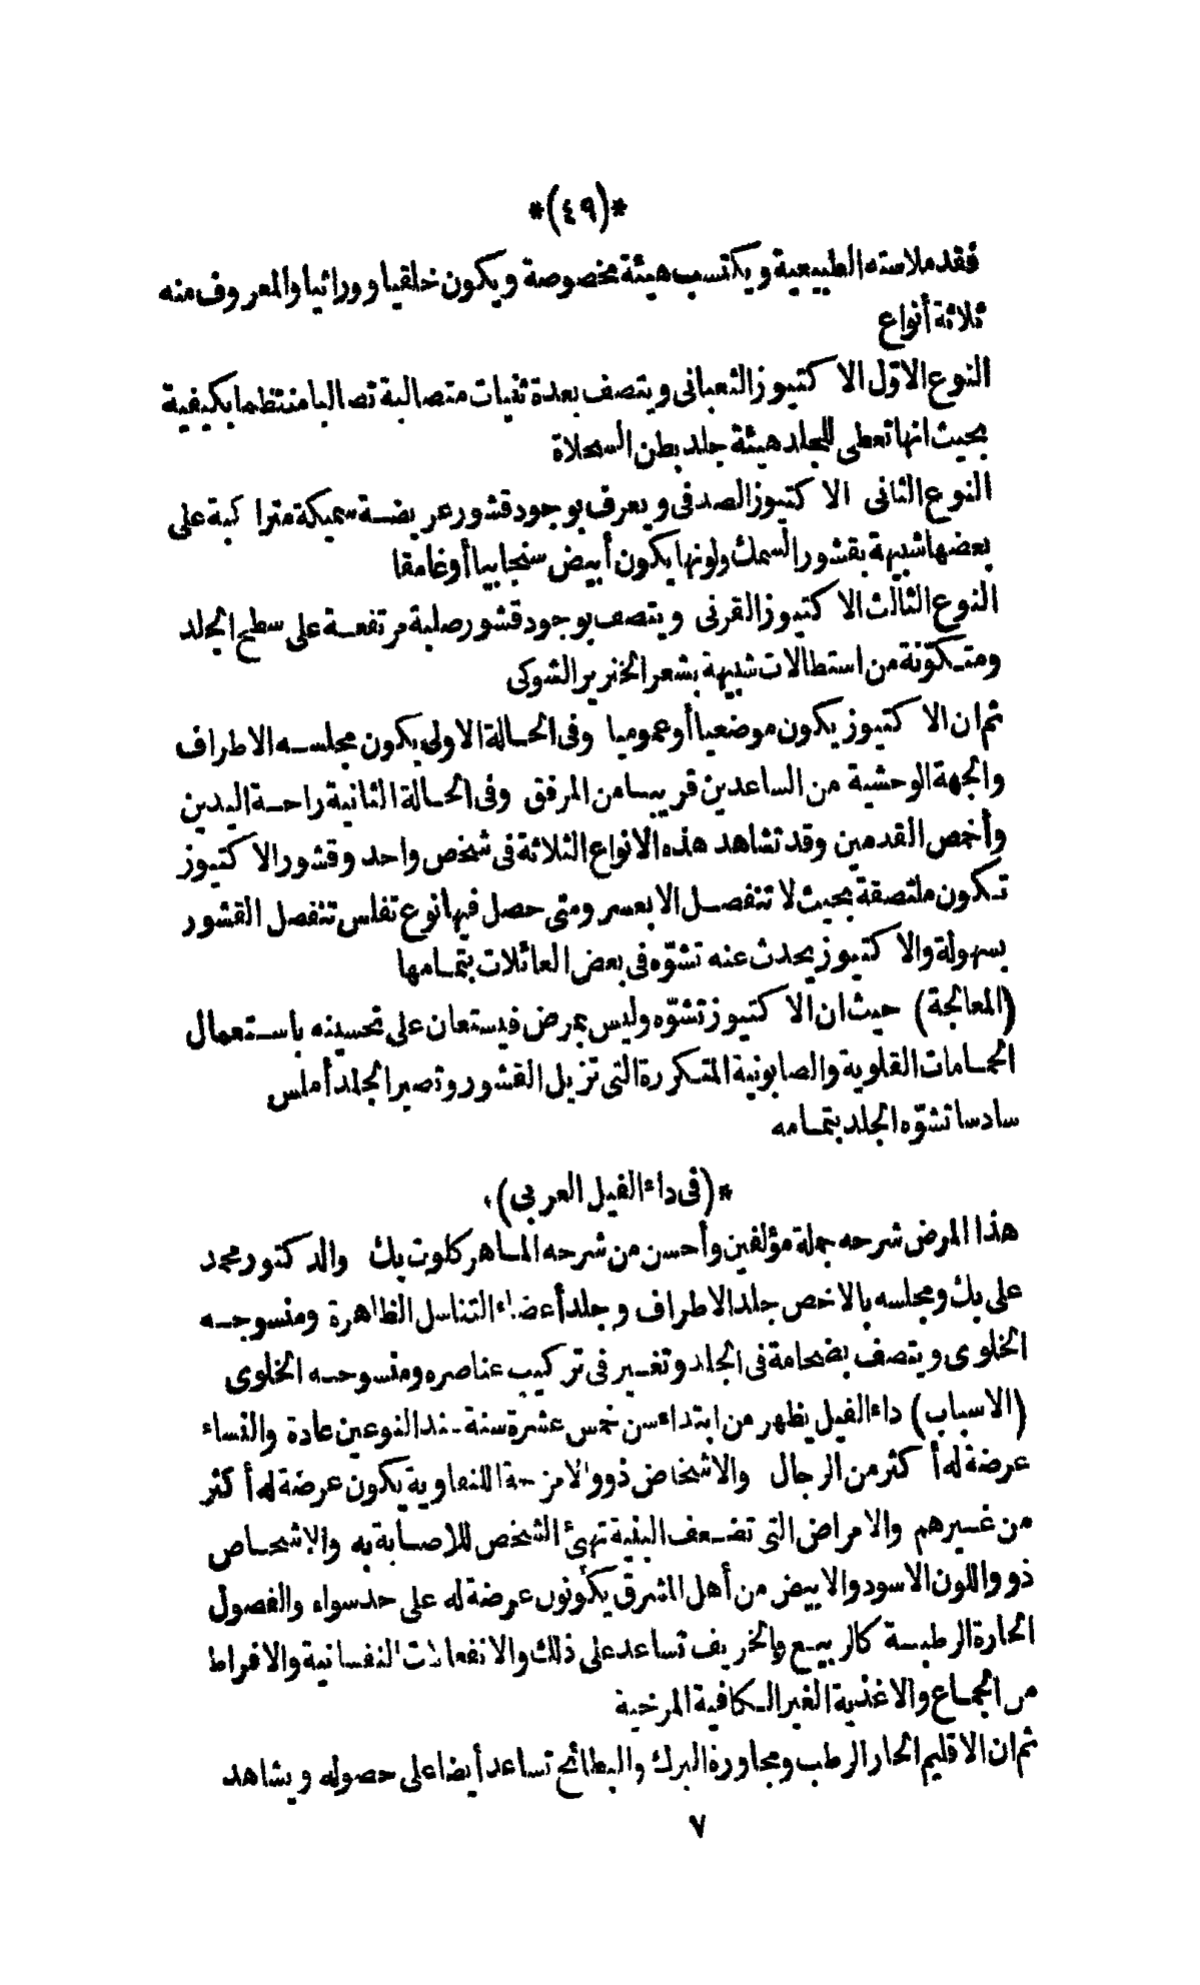 *(٤٩)*
فقد ملاسته الطبيعية ويكتسب هيئة مخصوصة ويكون خلقيا ووراثيا والمعروف منه
ثلاثة أنواع
النوع الاوّل الاكتيوز الثعبانى ويتصف بعدة ثنيات متصالبة تصالبا منتظما بكيفية
بحيث انها تعطى للجلد هيئة جلد بطن السحلاة
النوع الثانى الاكتيوز الصدفى ويعرف بوجود قشور عريضة سميكة متراكبة على
بعضها شبيهة بقشور السمك ولونها يكون أبيض سنجابيا أو غامقا
النوع الثالث الاكتيوز القرنى ويتصف بوجود قشور صلبة مرتفعة على سطح الجلد
ومتكوّنة من استطالات شبيهة بشعر الخنزير الشوكى
ثم ان الاكتيوز يكون موضعيا أو عموميا وفى الحالة الاولى يكون مجلسه الاطراف
والجهة الوحشية من الساعدين قريبا من المرفق وفى الحالة الثانية راحة اليدين
وأخمص القدمين وقد تشاهد هذه الانواع الثلاثة فى شخص واحد وقشور الاكتيوز
تكون ملتصقة بحيث لا تنفصل الا بعسر ومتى حصل فيها نوع تفلس تنفصل القشور
بسهولة والاكتيوز يحدث عنه تشوّه فى بعض العائلات بتمامها
(المعالجة) حيث ان الاكتيوز تشوّه وليس بمرض فيستعان على تحسينه باستعمال
الحمامات القلوية والصابونية المتكررة التى تزيل القشور وتصير الجلد أملس
سادسا تشوّه الجلد بتمامه
*(فى داء الفيل العربى)*
هذا المرض شرحه جملة مؤلفين وأحسن من شرحه الماهر كلوت بك والدكتور محمد
على بك ومجلسه بالاخص جلد الاطراف وجلد أعضاء التناسل الظاهرة ومنسوجه
الخلوى ويتصف بضخامة فى الجلد وتغير فى تركيب عناصره ومنسوجه الخلوى
(الاسباب) داء الفيل يظهر من ابتداء سن خمس عشرة سنة عند النوعين عادة والنساء
عرضة له أكثر من الرجال والاشخاص ذوو الامزجة اللنفاوية يكون عرضة له أكثر
من غيرهم والامراض التى تضعف البنية تهيئ الشخص للاصابة به والاشخاص
ذوو اللون الاسود والابيض من أهل المشرق يكونون عرضة له على حد سواء والفصول
الحارة الرطبة كالربيع والخريف تساعد على ذلك والانفعالات النفسانية والافراط
من الجماع والاغذية الغير الكافية المرخية
ثم ان الاقليم الحار الرطب ومجاورة البرك والبطائح تساعد أيضا على حصوله ويشاهد
٧